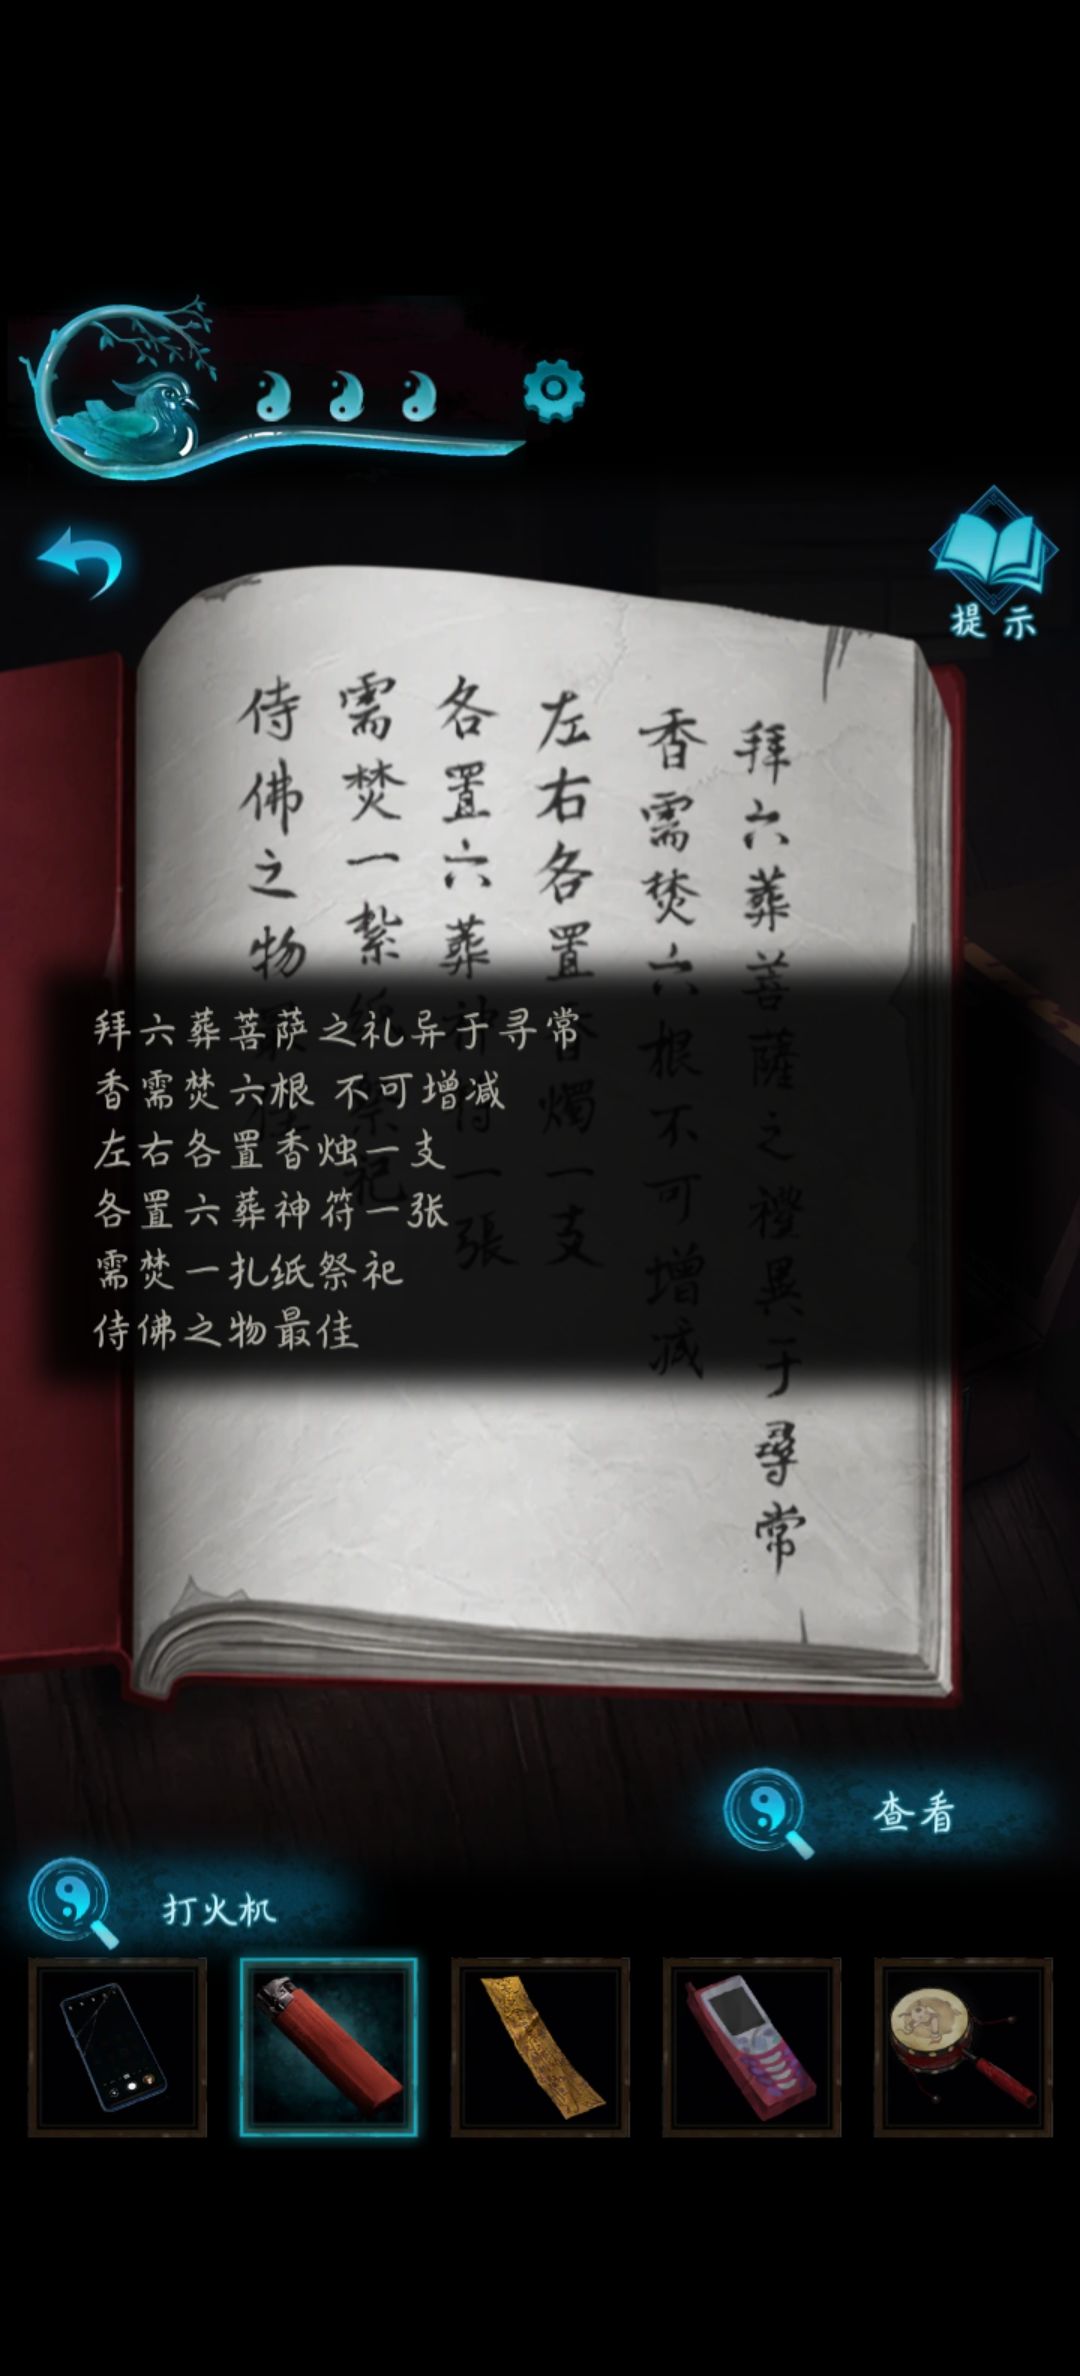 提示
拜六葬菩薩之禮異于尋常
香需焚六根不可增減
左右各置香燭一支
各置六葬神符一張
需焚一紮紙祭祀
侍佛之物最佳
拜六葬菩萨之礼异于寻常
香需焚六根 不可增减
左右各置香烛一支
各置六葬神符一张
需焚一扎纸祭祀
侍佛之物最佳
查看
打火机